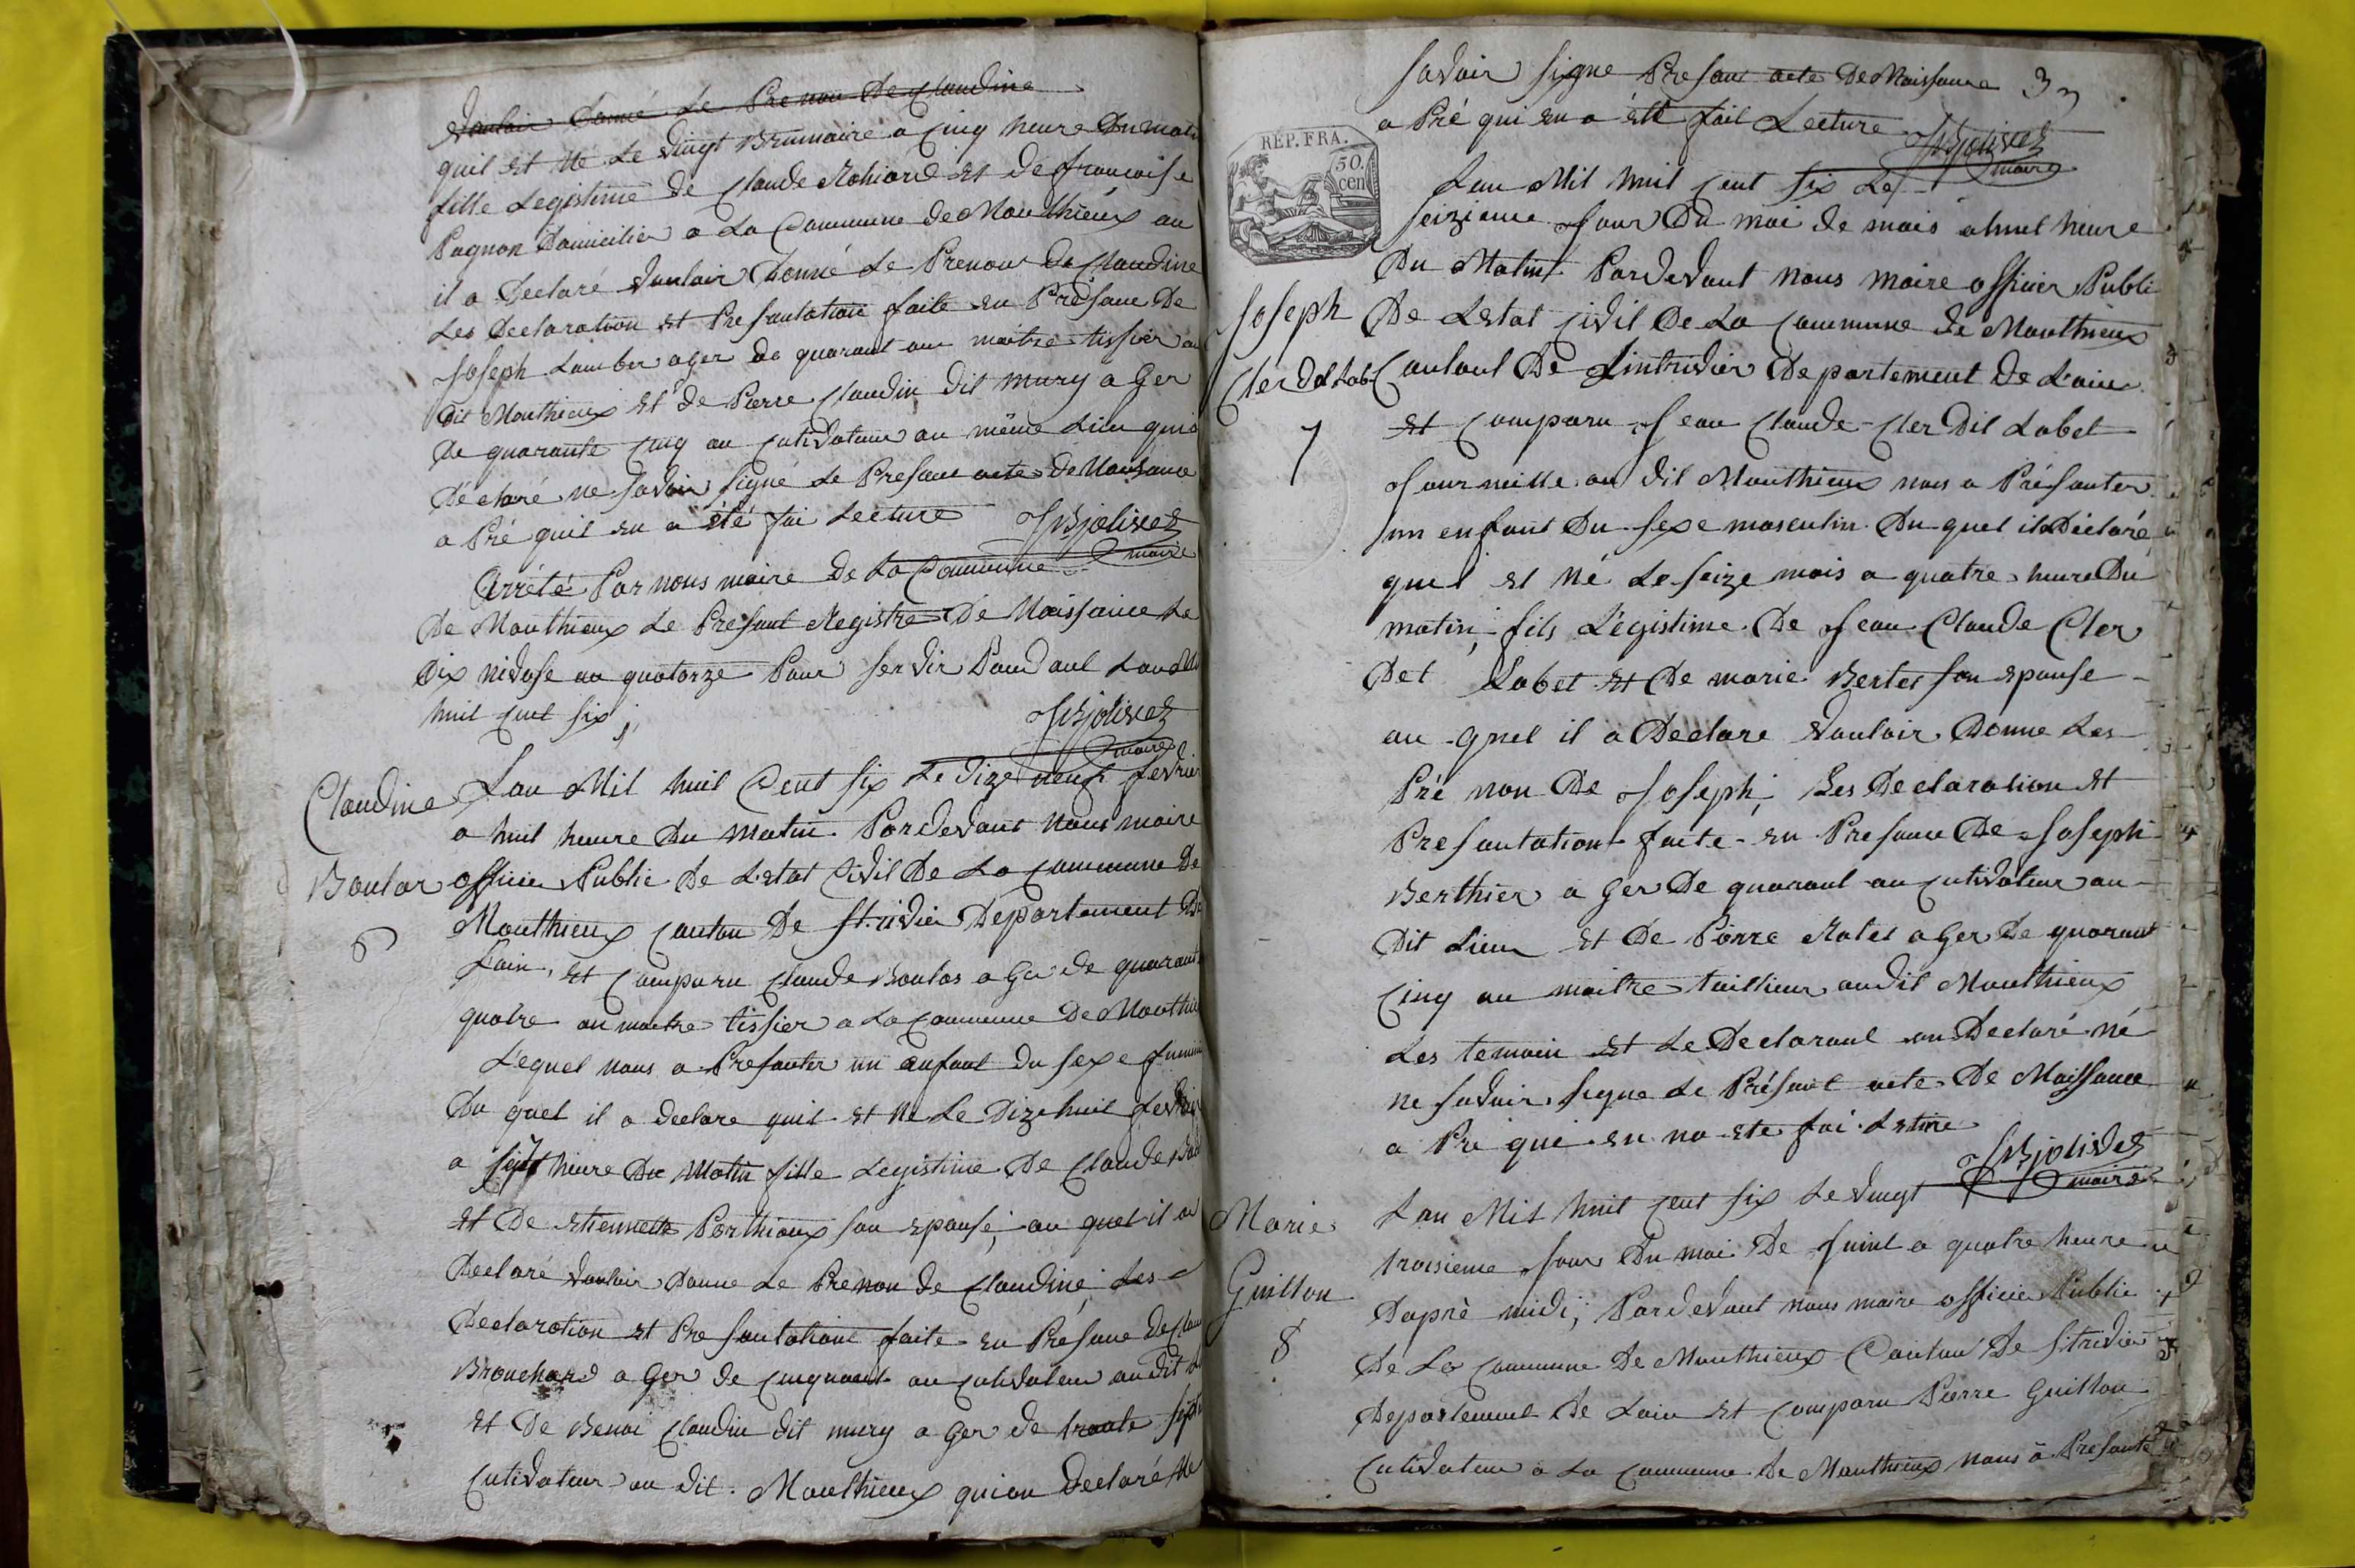 voulair donné Le Prenon De Claudine
quil Et Né Le Vingt Brumaire a Cinq heure Du mati
fille Legistime de Claude Rohiard Et de francoise
Pagnon Domicilier a La Commune de Monthieux au
il a Declaré Voulair Donné Le Prenom De Claudine
Les Declaration Et Presantation faite En Présance De
Joseph Lamber a Ger de quarant an maitre tissier au
Dit Monthieux Et de Pierre Claudin Dit mury a Ger
De quarante Cinq an Cutivateur au même Lieu quio
Déclaré ne Savoir Signé Le Presant acte de Naisance
a Pré quil En a été fai Lecture JBjolivet
maire
Arrêté Par nous maire De La Commune
De Monthieux Le Presant Registre De Naissance Le
Dix nivose an quatorze Pour Servir Pandant Lan Mil
huit Cent Six JBjolivet
maire
Claudine
Boular
6
Lan Mil huit Cent Six Le Dize neuf fevrier
a huit heure Du matin Pardevant Nous maire
officier Public De L'Etat Civil De La Commune De
Monthieux Canton De St. rivier Departement De
L'ain, Et Comparu Claude Boular a Ger de quarante
quatre an maitre tissier a La Commune De Monthie
Lequel nous a Presanter un Enfant Du Sexe feminin
Du quel il a declare quil Et Ne Le Dize huit fevrier
a Sept heure Du Matin fille Legistime De Claude Bou
Et De Etiennette Porthioux Son Epouse, au quel il a
Declaré Voulair Donne Le Prenon de Claudine Les
Declaration Et Presantationt faite En Présance De Clau
Brouchard a Ger de Cinquant an Cutivateur au dit L
Et De Benoi Claudin dit mury a Ger de trante Sept
Cutivateur au Dit Monthieux quion Declaré Ne
Savoir Signe Presant acte De Naissance 3
a Pré qui En a été fait Lecture JBjolivet
maire
REP. FRA.
50.
cen
Joseph
Cler det Labet
7
Lan Mil huit Cent Six Le
Seizieme Jour Du moi de mars a huit heure
Du Matin Pardevant nous maire officier Publi
De Létat Civil De La Commune de Monthieux
Cantont De Sintrivier Departement De L'ain
Et Comparu Jean Claude Cler Dit Labet
Journeille au Dit Monthieux nous a Présanter
un enfant Du Sexe masculin Du quel il a Déclaré
quel Et Né Le Seize mars a quatre heure Du
matin, fils Légistime De Jean Claude Cler
Det Labet Et De marie Bertet Son Epouse
au quel il a Declare Voulair Donne Les
Pré non De Joseph, Les Declaration Et
Presantation faite En Presance De Joseph
Berthier a Ger De quarant an Cutivateur au
Dit Lieu Et De Pierre Ratet a Ger De quarant
Cinq an maitre tailleur audit Monthieux
Les temoin Et Le Declarant on Declaré né
ne Savoir Signe Le Présant acte De Naissance
a Pre qui En na Ete fai Letture
JBjolivet
maire
Marie
Guillon
8
Lan Mil huit Cent Six Le Vingt
troisieme Jour Du moi De Juint a quatre heure
Daprè midi, Pardevant nous maire officie Public
De La Commune De Monthieux Canton De St rivier
Departement De Lain Et Comparu Pierre Guillon
Cutivateur a La Commune De Monthieux Nous a Présanté